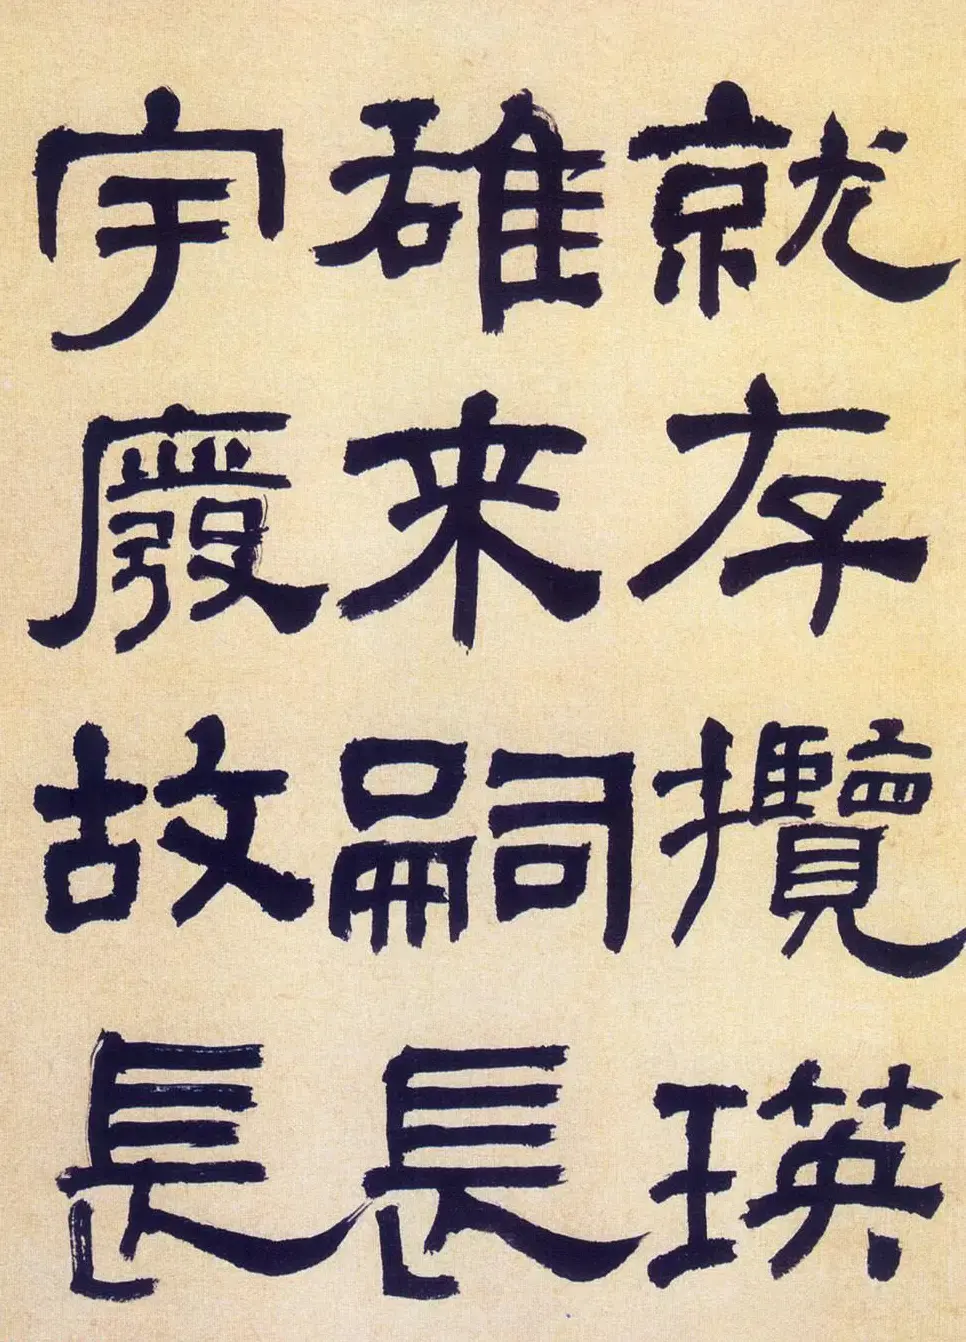 就存攬瑛
雄来嗣長
宇廢故長